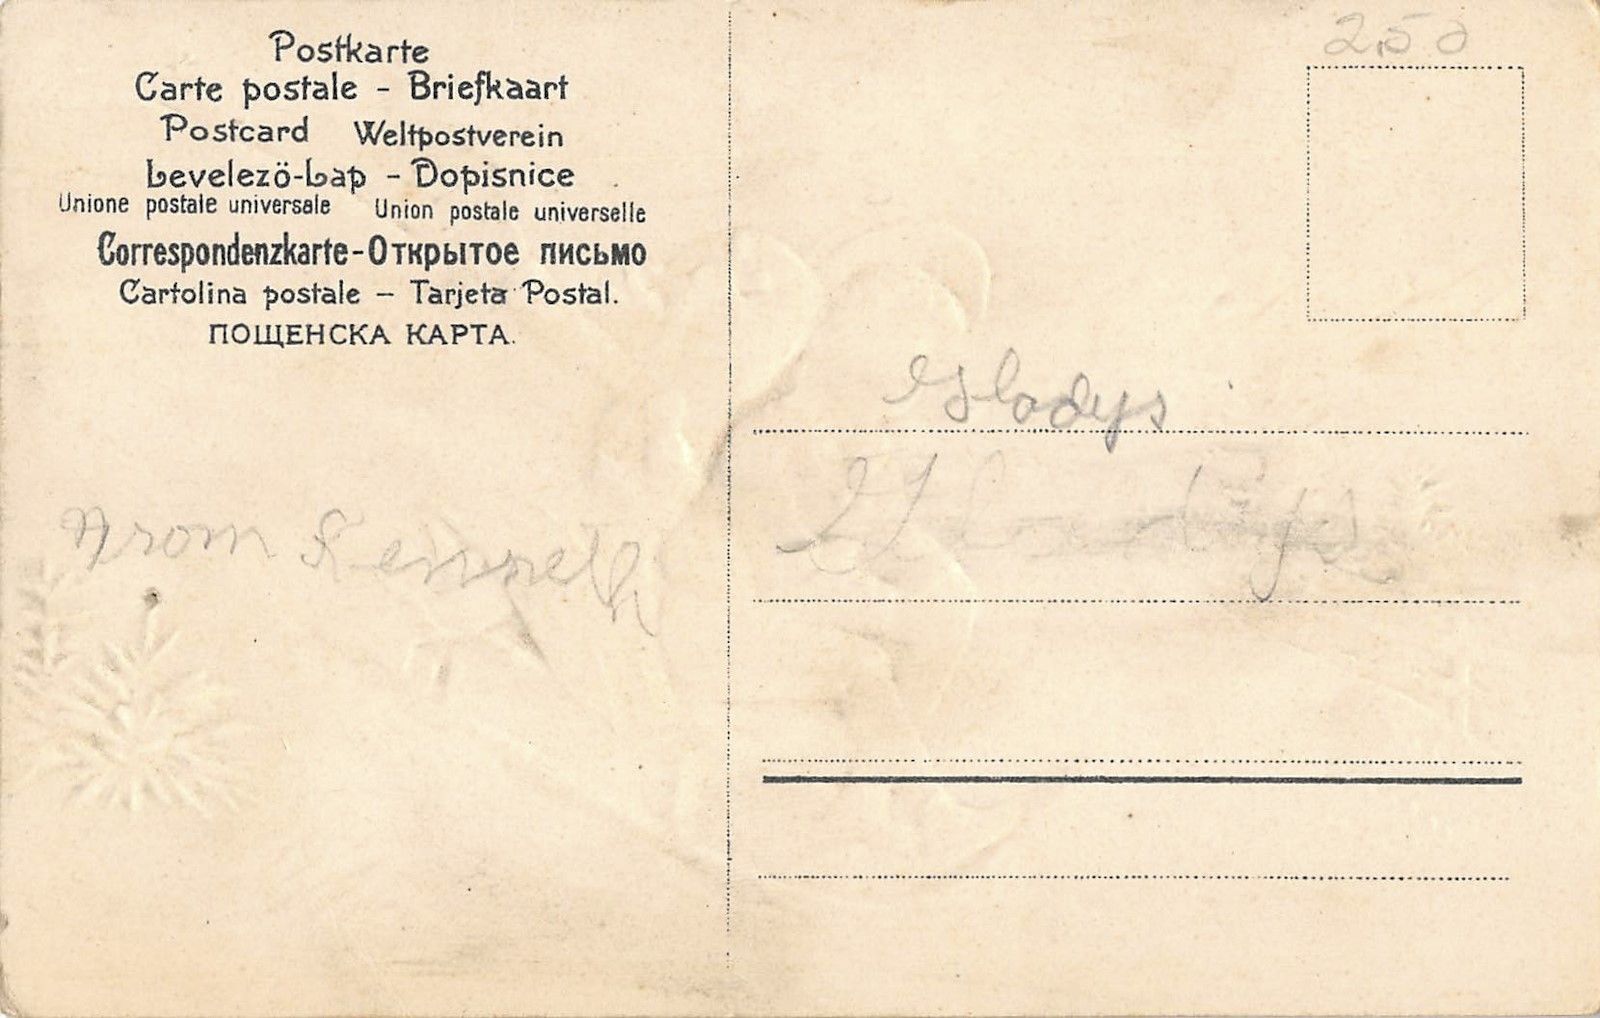 Postkarte
Carte postale - Briefkaart
Postcard Weltpostverein
Levelezö-Lap - Dopisnice
Unione postale universale Union postale universelle
Correspondenzkarte-Открытое письмо
Cartolina postale - Tarjeta Postal.
ПОЩЕНСКА КАРТА.
2,50
Gladys
From Kenneth